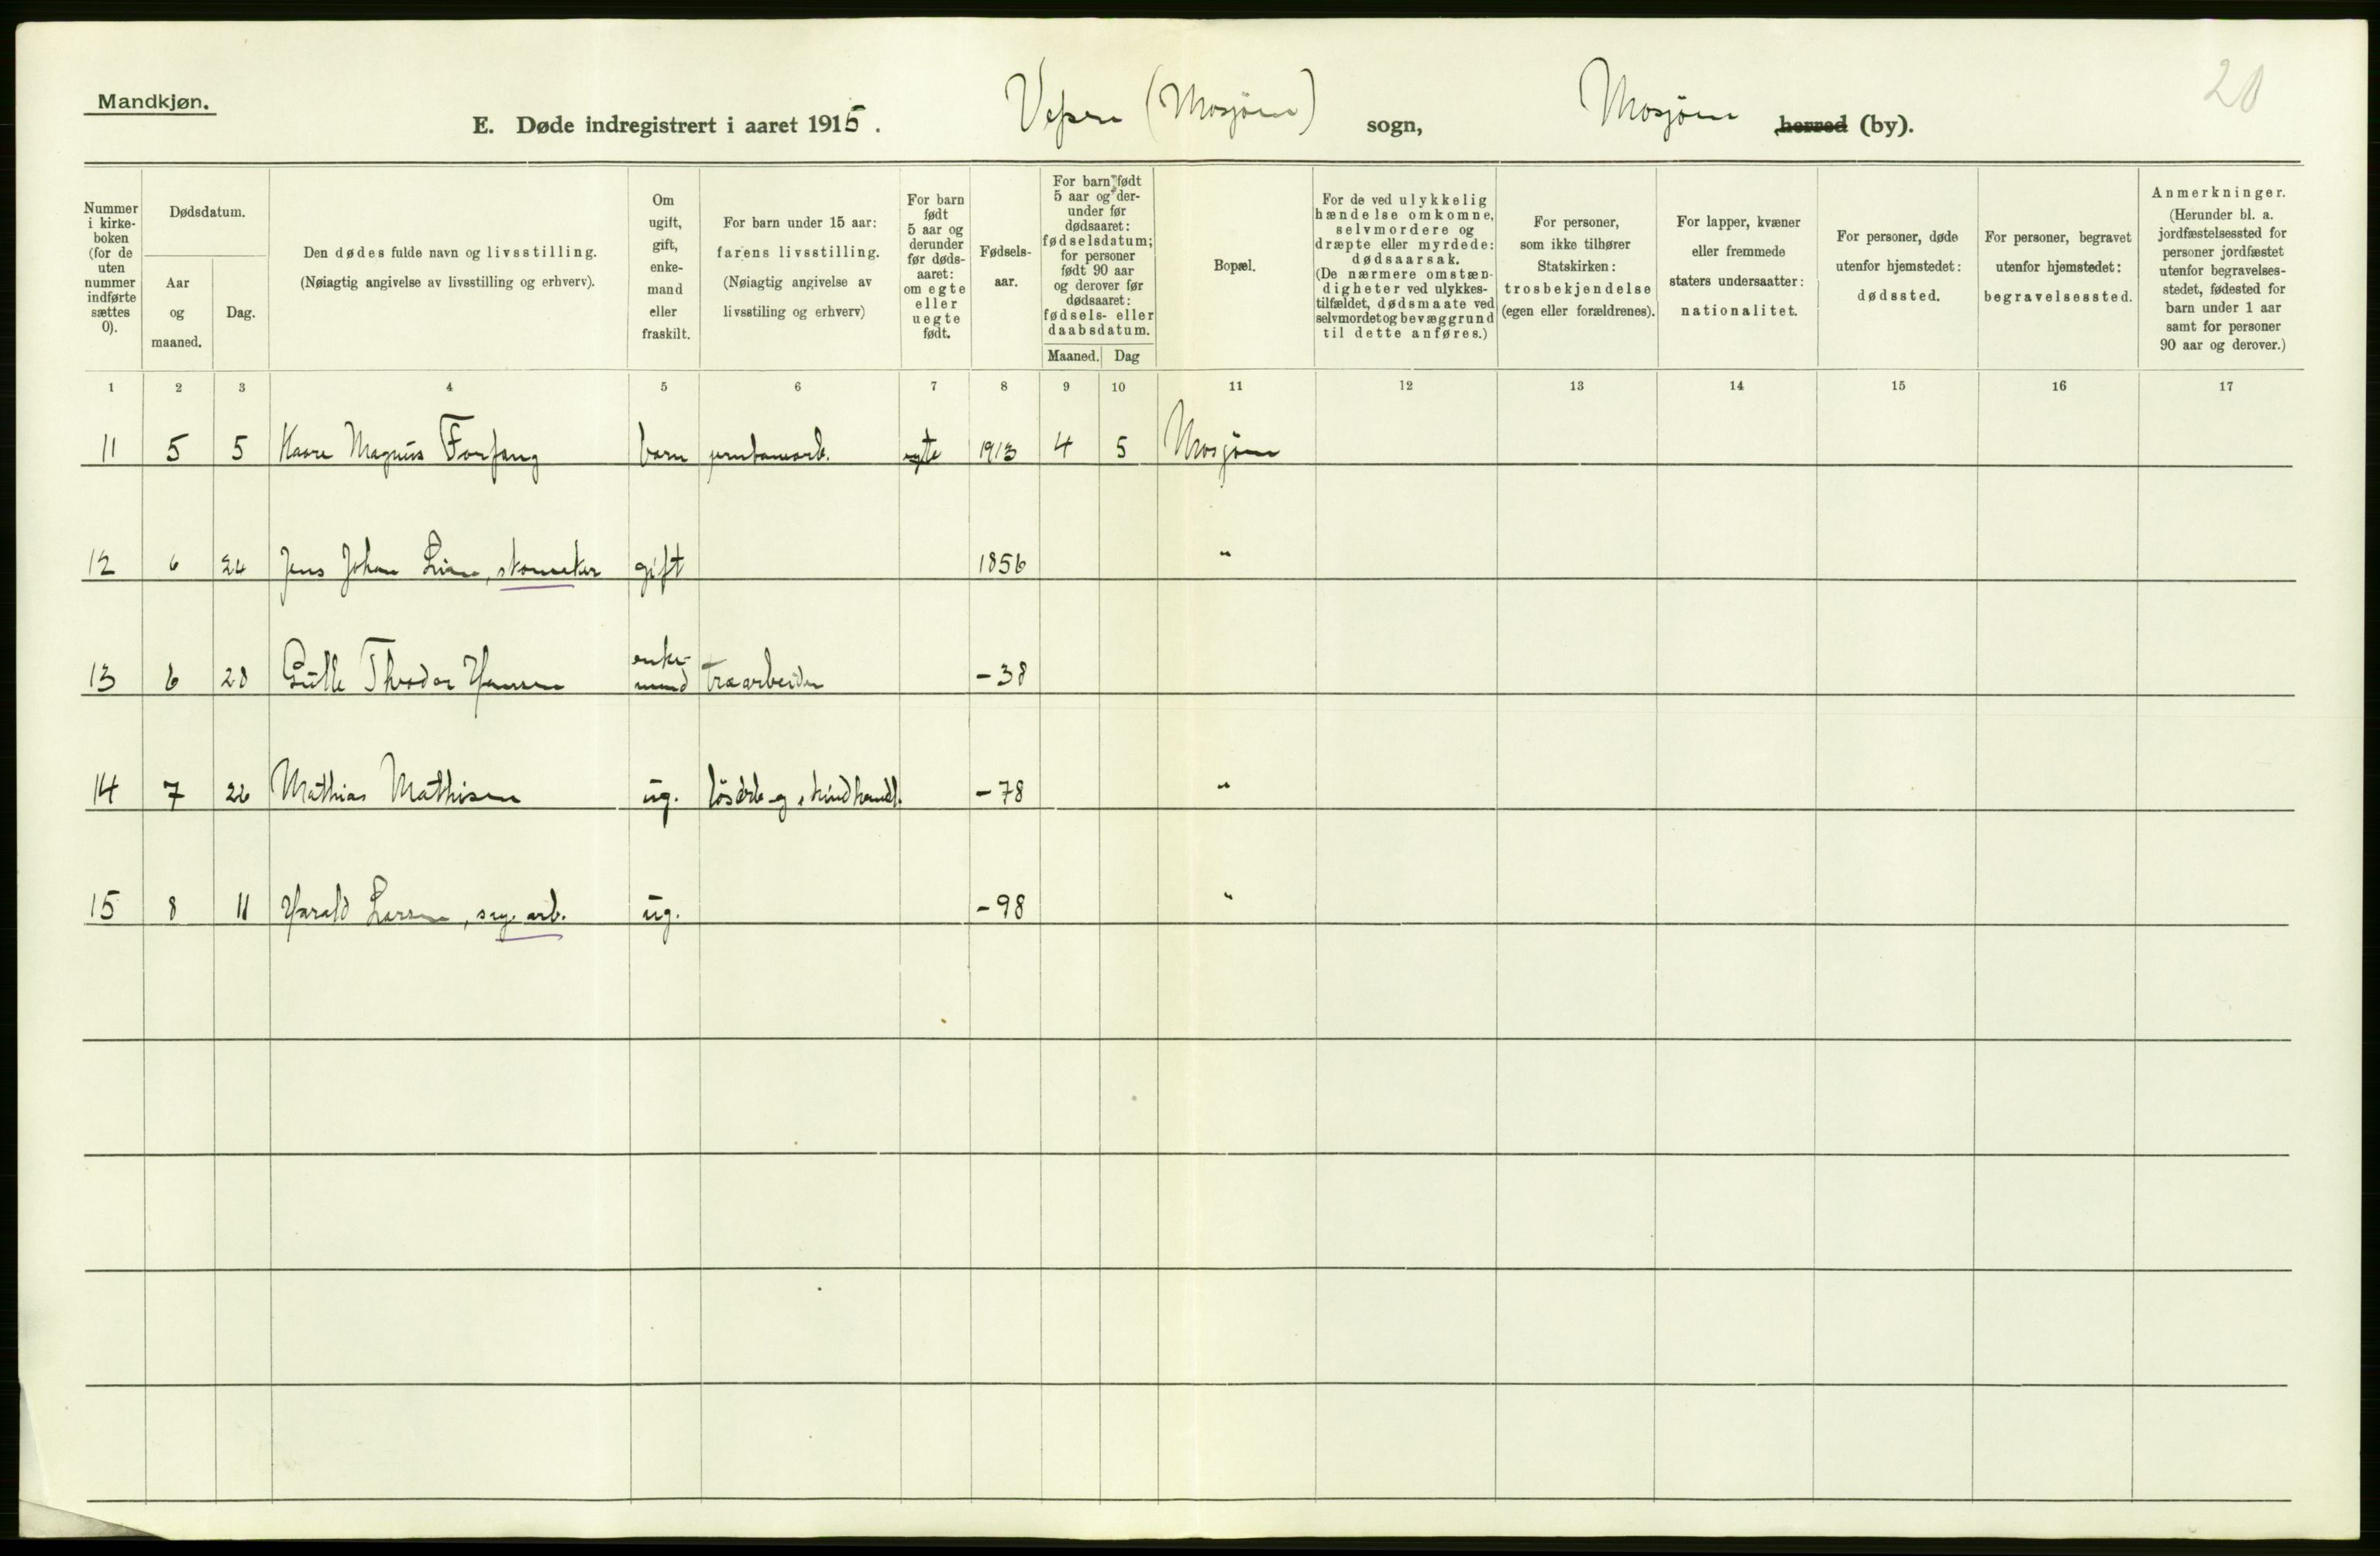 Mandkjøn.
E. Døde indregistrert i aaret 1915. Vefsen (Mosjøen) sogn, Mosjøen herred (by).
20
Nummer i kirkeboken (for de uten nummer indførte sættes 0).
Dødsdatum.
Aar og maaned.
Dag.
Den dødes fulde navn og livsstilling.
(Nøiagtig angivelse av livsstilling og erhverv).
Om ugift, gift, enkemand eller fraskilt.
For barn under 15 aar:
farens livsstilling.
(Nøiagtig angivelse av livsstiling og erhverv)
For barn født 5 aar og derunder før dødsaaret: om egte eller uegte født.
Fødselsaar.
For barn født 5 aar og derunder før dødsaaret: fødselsdatum; for personer født 90 aar og derover før dødsaaret: fødsels- eller daabsdatum.
Maaned. Dag
Bopæl.
For de ved ulykkelig hændelse omkomne, selvmordere og dræpte eller myrdede: dødsaarsak.
(De nærmere omstændigheter ved ulykkestilfældet, dødsmaate ved selvmordet og bevæggrund til dette anføres.)
For personer, som ikke tilhører Statskirken: trosbekjendelse (egen eller forældrenes).
For lapper, kvæner eller fremmede staters undersaatter: nationalitet.
For personer, døde utenfor hjemstedet: dødssted.
For personer, begravet utenfor hjemstedet: begravelsessted.
Anmerkninger.
(Herunder bl. a. jordfæstelsessted for personer jordfæstet utenfor begravelsesstedet, fødested for barn under 1 aar samt for personer 90 aar og derover.)
1 2 3 4 5 6 7 8 9 10 11 12 13 14 15 16 17
11 5 5 Kaare Magnus Forfang barn egte 1913 4 5 Mosjøen
12 6 24 Jens Johan skomaker gift 1856 "
13 6 28 Theodor Hansen enkemand træarbeider -38
14 7 26 Mathias Mathisen ug. løsarb. og skindhandl. -78 "
15 8 11 Harald Larsen, sag.arb. ug. -98 "